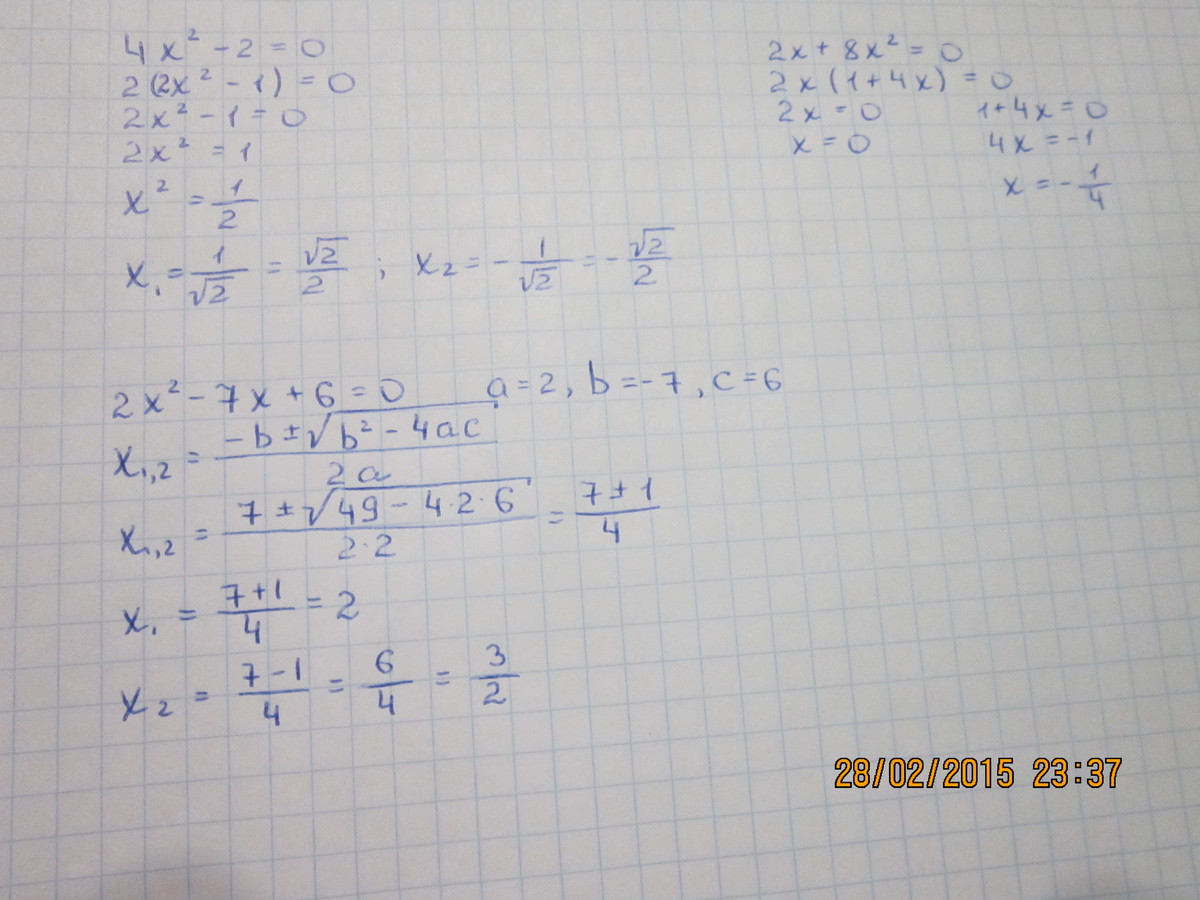 4x² - 2 = 0
2(2x² - 1) = 0
2x² - 1 = 0
2x² = 1
x² = 1/2
x₁ = 1/√2 = √2/2 ; x₂ = - 1/√2 = - √2/2
2x + 8x² = 0
2x(1 + 4x) = 0
2x = 0 1 + 4x = 0
x = 0 4x = -1
x = - 1/4
2x² - 7x + 6 = 0 a = 2, b = -7, c = 6
x₁,₂ = (-b ± √(b² - 4ac))/(2a)
x₁,₂ = (7 ± √(49 - 4·2·6))/(2·2) = (7 ± 1)/4
x₁ = (7+1)/4 = 2
x₂ = (7-1)/4 = 6/4 = 3/2
28/02/2015 23:37